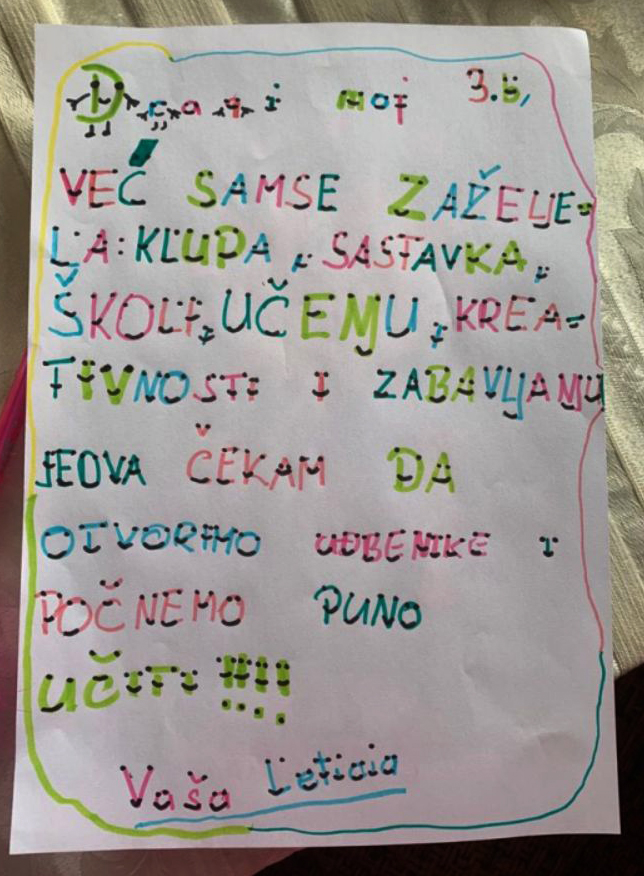 Dragi moj 3.b,
VEĆ SAMSE ZAŽELJE-
LA: KLUPA, SASTAVKA,
ŠKOLE, UČENJU, KREA-
TIVNOSTI I ZABAVLJANJU
JEDVA ČEKAM DA
OTVORIMO UĐBENIKE I
POČNEMO PUNO
UČITI !!!!
Vaša Leticia